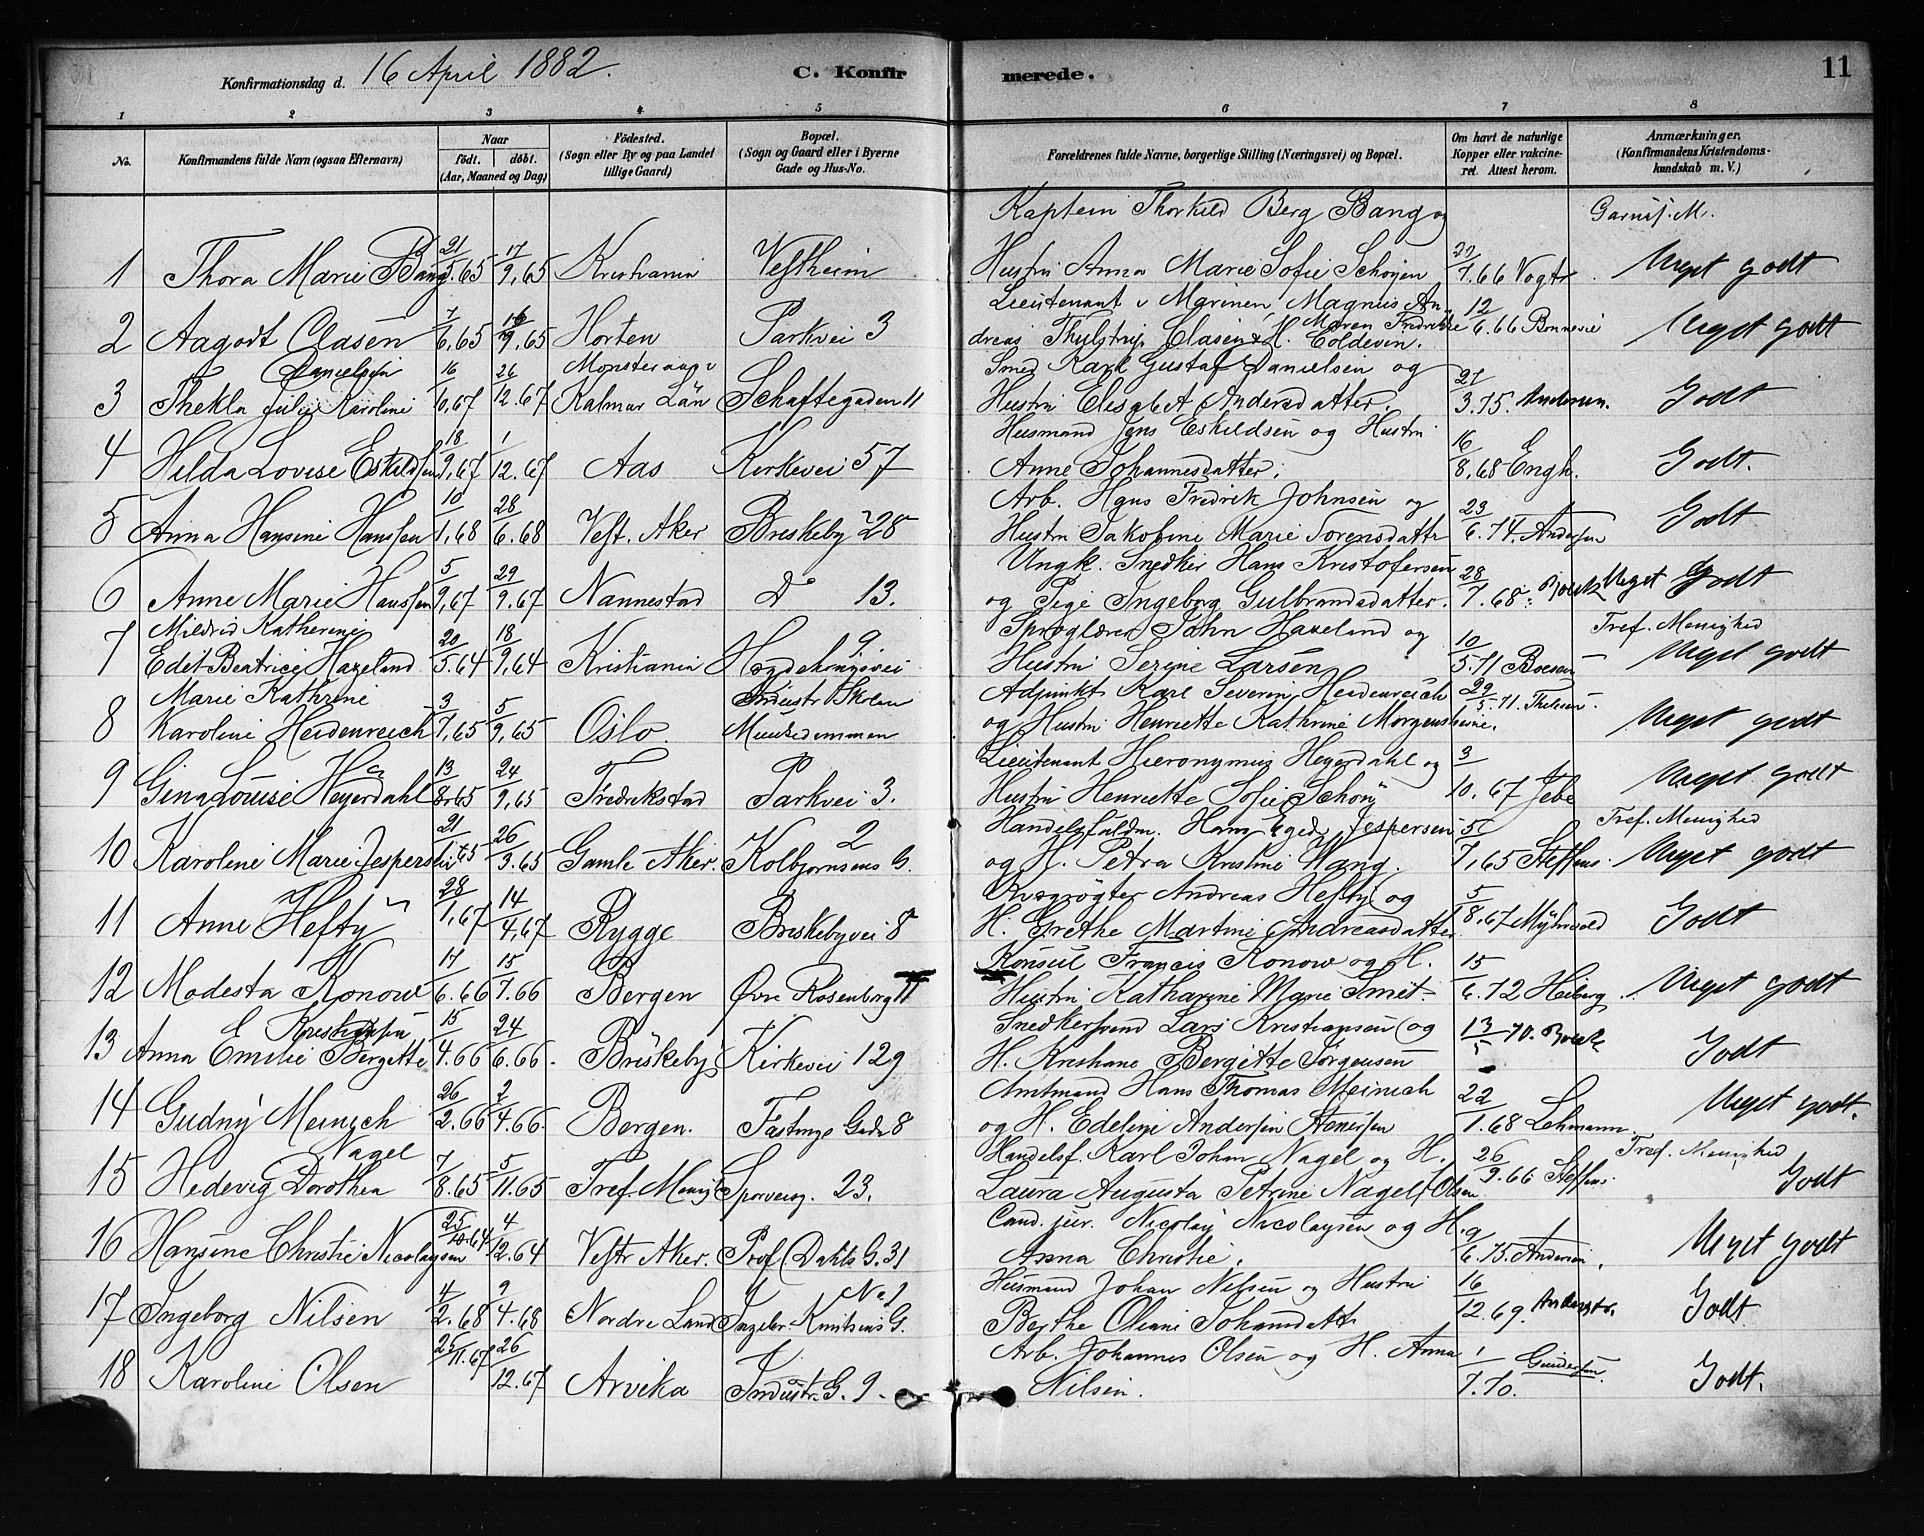 Konfirmationsdag d. 16 April 1882.
C. Konfirmerede.
11
1 2 3 4 5 6 7 8
No.
Konfirmandens fulde Navn (ogsaa Efternavn)
Naar
födt. döbt.
(Aar, Maaned og Dag)
Födested.
(Sogn eller By og paa Landet
tillige Gaard)
Bopæl.
(Sogn og Gaard eller i Byerne
Gade og Hus-No.
Forældrenes fulde Navne, borgerlige Stilling (Næringsvei) og Bopæl.
Om havt de naturlige
Kopper eller vakcine-
ret. Attest herom.
Anmærkninger,
(Konfirmandens Kristendoms-
kundskab m. V.)
Kaptein Thorkild Berg Bang og Garnis. M.
1 Thora Marie Bang 21/5.65 17/9.65 Kristiania Vestheim Hustru Anna Marie Sofie Schøyen 7.66 Vogt Meget godt
Lieutenant v Marinen, Magnus An-
2 Aagodt Clasen 7/6.65 9.65 Horten Parkvei 3 dreas Thylstrup Clasen & H. Maren Fredrikke Coldevin. 12/6.66 Bonnevie Meget godt
Danielsen Mønsteraas i Smed Karl Gustaf Danielsen og
3 Thekla Julie Karoline 16/10.67 26/12.67 Kalmar Län Schaftegaden 11 Hustru Elisabet Andersdatter 21/3.75. Andersen. Godt
Husmand Jens Eskildsen og Hustru
4 Hilda Lovise Eskildsen 18/9.67 1/12.67 Aas Kirkevei 57 Anne Johannesdatter. 16/8.68 Engh. Godt.
Arb. Hans Fredrik Johnsen og
5 Anna Hansine Hanssen 10/1.68 28/6.68 Vest. Aker Briskeby 28 Hustru Jakobine Marie Sorensdattr 23/6.74. Andersen Godt
Ungk. Snedker Hans Kristofersen
6 Anne Marie Hanssen 5/9.67 29/9.67 Nannestad Do 13. og Pige Ingeborg Gulbrandsdatter. 28/7.68. Meget Godt
Mildrid Katherine Sproglærer John Hazeland og Tref. Menighed
7 Edit Beatrice Hazeland 20/5.64 18/9.64 Kristiania Hegdehaugsvei 9 Hustru Serine Larsen 10/5.71 Boesen Meget godt
Marie Kathrine Industri Skolen Adjunkt Karl Severin Heidenreich
8 Karoline Heidenreich 3/7.65 5/9.65 Oslo. Munkedammen og Hustru Henriette Kathrine Morgenstierne. 29/5.71. Thelesen Meget godt
Lieutenant Hieronymus Heyerdahl og
9 Gina Louise Heyerdahl 13/8.65 24/9.65 Fredrikstad Parkvei 3. Hustru Henriette Sofie Schøn 3/10.67 Jebe Meget godt
Handelsfuldm. Hans Egede Jespersen Tref. Menighed
10 Karoline Marie Jespersen 21/1.65 26/3.65 Gamle Aker. Kolbjørnsens G. 2 og H. Petra Kristine Wang. 5/7.65 Steffens. Meget godt
Kvægrøgter Andreas Hefty og
11 Anne Hefty 28/1.67 14/4.67 Rygge Briskebyvei 8 H. Grethe Martine Andreasdatter 5/8.67 Myhrvold Godt
Konsul Francis Konow og H.
12 Modesta Konow 17/6.66 15/7.66 Bergen Øvre Rosenborg 11 Hustru Katharine Marie Smit. 15/6.72 Heiberg Meget godt
Kristiansen Snedkersvend Lars Kristiansen og
13 Anna Emilie Bergette 15/4.66 24/6.66. Briskeby Kirkevei 129 H. Kristiane Bergitte Jørgensen 13/5 70. Godt
Amtmand Hans Thomas Meinich
14 Gudny Meinich 26/2.66 2/4.66. Bergen. Fastings Gade 8 og H. Edeline Andersen Aanersen 22/1.68 Lehmann Meget godt.
Nagel Handelsf. Karl Johan Nagel og H. Tref. Menighed
15 Hedevig Dorothea 7/8.65 5/11.65 Tref. Menigh Sporveisg. 23. Laura Augusta Petrine Nagel f Olsen 26/9.66 Steffens. Godt
Cand. jur. Nicolay Nicolaysen og H.
16 Hansine Christie Nicolaysen 25/10.64 4/12.64 Vestr Aker. Prof Dahls G. 31 Anna Christie. 9/6.75. Andersen, Meget godt
No 1 Husmand Johan Nilsen og Hustru
17 Ingeborg Nilsen 4/2.68 9/4.68 Nordre Land Ingebr. Knutsens G. Berthe Oliane Johansdatt 16/12.69. Godt.
Arb. Johannes Olsen og H. Anna
18 Karoline Olsen 25/11.67 26/12.67 Arvika Industr. G. 9. Nilsen. 1/7.70. Gundersen. Godt.